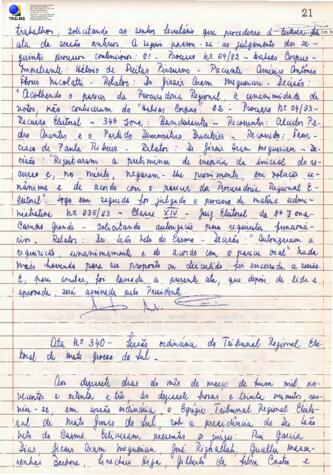 TRE-MS
21
trabalhos, solicitando ao senhor secretário que procedesse à leitura da
ata da sessão anterior. A seguir passou-se ao julgamento dos se-
guintes processos contenciosos: 01 - Processo Nº 04/83 - Habeas Corpus -
Impetrante: Heloio de Freitas - Paciente Américo Antônio
Flores Nicolatti - Relator: Dr. Jirair Aram Meguerian - Decisão:
"Acolhendo o parecer da Procuradoria Regional, à unanimidade de
votos, não conheceram do Habeas Corpus. 02 - Processo Nº 09/83 -
Recurso Eleitoral - 34ª Zona, - Recorrente: Alcides Pe-
dro e o Partido Democrático Brasileiro - Recorrido: Fran-
cisco de Paula Ribeiro - Relator: Dr. Jirair Aram Meguerian - De-
cisão: "Rejeitaram a preliminar de da inicial do re-
curso e, no mérito, negaram-lhe provimento, em votação u-
nânime e de acordo com o parecer da Procuradoria Regional E-
leitoral". Logo em seguida foi julgado o processo de matéria admi-
nistrativa Nº 035/83 - Classe XIV - Juiz Eleitoral da 8ª Zona -
Campo Grande - Solicitando autorização para requisitar funcioná-
rio. Relator: Des. Leão Neto do Carmo - Decisão: "Autorizaram a
requisição, unanimemente e de acordo com o parecer oral." Nada
mais havendo para ser proposto ou discutido foi encerrada a sessão
E, para constar, foi lavrada a presente ata, que depois de lida e
aprovada, será assinada pelo Presidente.
Ata Nº 340 - Sessão ordinária do Tribunal Regional Elei-
toral de Mato Grosso do Sul.
Aos dezessete dias do mês de março de hum mil, no-
vecentos e oitenta e três às dezessete horas e trinta minutos, reu-
niu-se, em sessão ordinária, o Egrégio Tribunal Regional Eleito-
ral de Mato Grosso do Sul, sob a presidência do Des. Leão
Neto do Carmo. Estiveram presentes os juízes: Rui Garcia
Dias, Jirair Aram Meguerian, José Rizkallah,
Barbosa, Higa, Gilberto da Silva Castro e